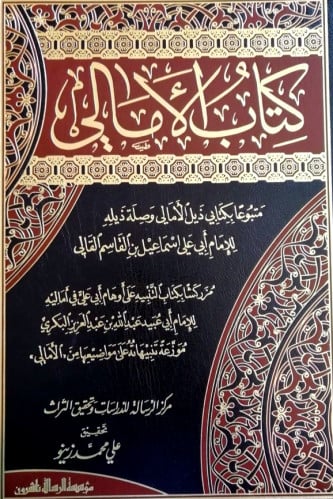 كتاب الأمالي
متبوعا بكتابي ذيل الأمالي وصلة ذيله
للإمام أبي علي إسماعيل بن القاسم القالي
مزركشا بكتاب التنبيه على أوهام أبي علي في أماليه
للإمام أبي عبيد عبد الله بن عبد العزيز البكري
موزعة تنبيهاته على مواضيعها من «الأمالي»
مركز الرسالة للدراسات وتحقيق التراث
تحقيق
علي محمد زينو
مؤسسة الرسالة ناشرون